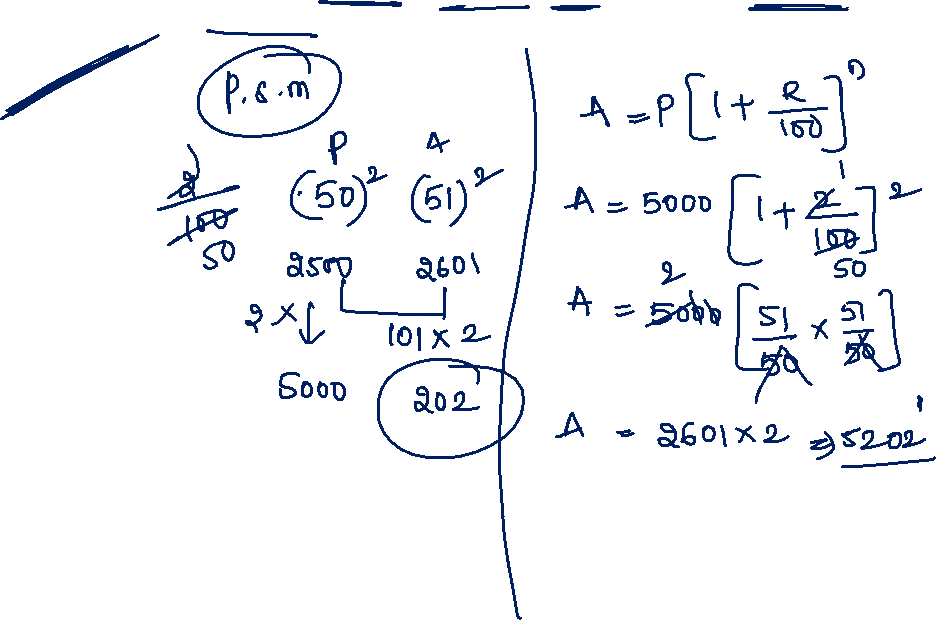 P.s.m
P A
2/100 (50)² (51)²
50 2500 2601
2 × ↓ 101 × 2
5000 202
A = P [1 + R/100]ⁿ
A = 5000 [1 + 2/100]²
1 50
A = 5000 [51/50 × 51/50]
2
A = 2601 × 2 ⇒ 5202